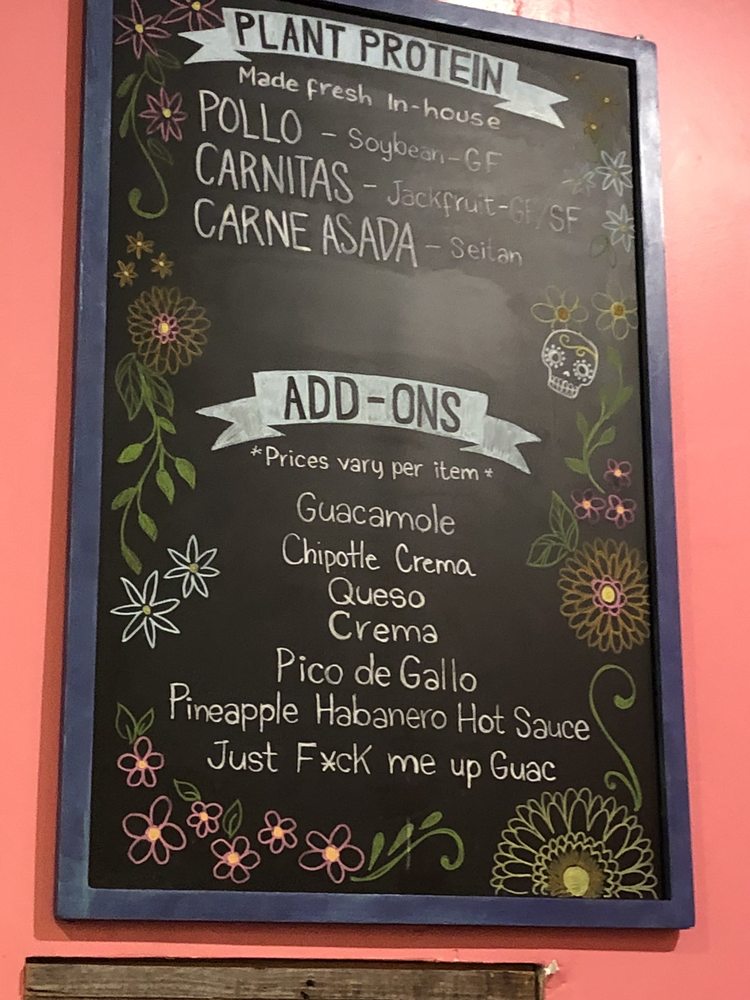 PLANT PROTEIN
Made fresh In-house
POLLO - Soybean-GF
CARNITAS - Jackfruit-GF/SF
CARNE ASADA - Seitan
ADD-ONS
*Prices vary per item*
Guacamole
Chipotle Crema
Queso
Crema
Pico de Gallo
Pineapple Habanero Hot Sauce
Just F*cK me up Guac